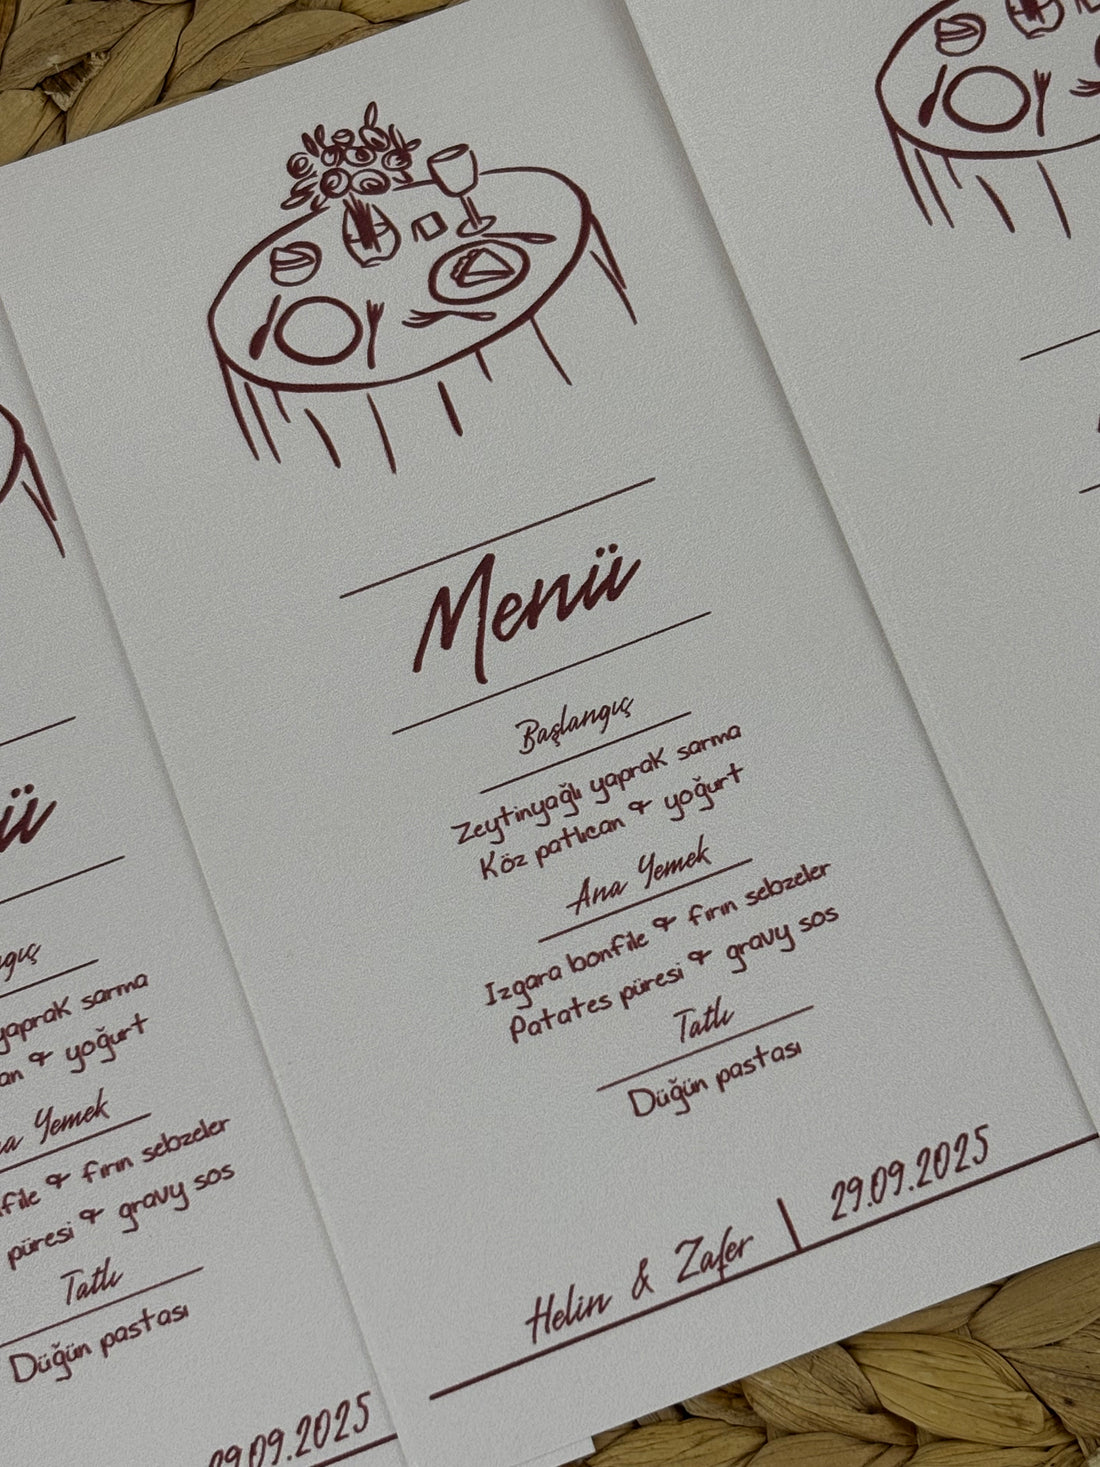 Menü
Başlangıç
Zeytinyağlı yaprak sarma
Köz patlıcan & yoğurt
Ana Yemek
Izgara bonfile & fırın sebzeler
Patates püresi & gravy sos
Tatlı
Düğün pastası
Helin & Zafer | 29.09.2025
ü
ngıç
yaprak sarma
an & yoğurt
a Yemek
file & fırın sebzeler
püresi & gravy sos
Tatlı
Düğün pastası
29.09.2025